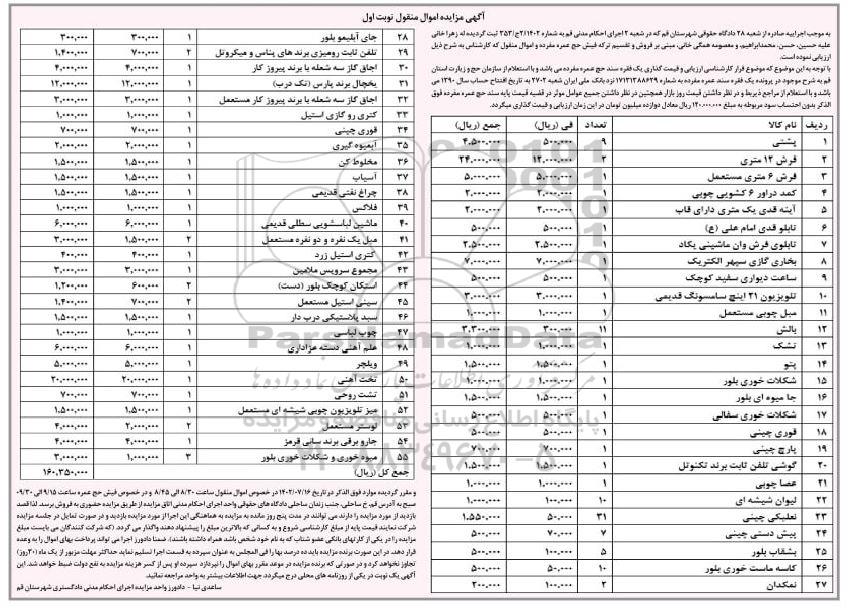 آگهی مزایده اموال منقول نوبت اول
به موجب اجراییه صادره از شعبه ۲۸ دادگاه حقوقی شهرستان قم که در شعبه ۲ اجرای احکام مدنی قم به شماره ۲/۱۴۰۲/ج/۳۵۳ ثبت گردیده له زهرا خانی
علیه حسین، حسن، محمدابراهیم، و معصومه همگی خانی، مبنی بر فروش و تقسیم ترکه فیش حج عمره مفرده و اموال منقول که کارشناس به شرح ذیل
ارزیابی نموده است.
با توجه به این موضوع که موضوع قرار کارشناسی ارزیابی و قیمت گذاری یک فقره سند حج عمره مفرده می باشد و با استعلام از سازمان حج و زیارت استان
قم به شرح موجود در پرونده یک فقره سند عمره مفرده به شماره ۱۷۱۳۱۳۸۸۶۲۹ نزد بانک ملی ایران شعبه ۲۷۰۲ به تاریخ افتتاح حساب سال ۱۳۹۰ می
باشد و با استعلام از مراجع ذیربط و در نظر داشتن قیمت روز بازار همچنین در نظر داشتن جمیع عوامل موثر در قضیه قیمت پایه سند حج عمره مفرده فوق
الذکر بدون احتساب سود مربوطه به مبلغ ۱۲۰.۰۰۰.۰۰۰ ریال معادل دوازده میلیون تومان در این زمان ارزیابی و قیمت گذاری میگردد.
ردیف نام کالا تعداد فی (ریال) جمع (ریال)
۱ پشتی ۹ ۵۰۰.۰۰۰ ۴.۵۰۰.۰۰۰
۲ فرش ۱۲ متری ۲ ۱۲.۰۰۰.۰۰۰ ۲۴.۰۰۰.۰۰۰
۳ فرش ۶ متری مستعمل ۱ ۵.۰۰۰.۰۰۰ ۵.۰۰۰.۰۰۰
۴ کمد دراور ۶ کشویی چوبی ۱ ۲.۰۰۰.۰۰۰ ۲.۰۰۰.۰۰۰
۵ آینه قدی یک متری دارای قاب ۱ ۲.۰۰۰.۰۰۰ ۲.۰۰۰.۰۰۰
۶ تابلو قدی امام علی (ع) ۱ ۵۰۰.۰۰۰ ۵۰۰.۰۰۰
۷ تابلوی فرش وان ماشینی یکاد ۱ ۲.۵۰۰.۰۰۰ ۲.۵۰۰.۰۰۰
۸ بخاری گازی سپهر الکتریک ۱ ۷.۰۰۰.۰۰۰ ۷.۰۰۰.۰۰۰
۹ ساعت دیواری سفید کوچک ۱ ۵۰۰.۰۰۰ ۵۰۰.۰۰۰
۱۰ تلویزیون ۲۱ اینچ سامسونگ قدیمی ۱ ۳.۰۰۰.۰۰۰ ۳.۰۰۰.۰۰۰
۱۱ مبل چوبی مستعمل ۱ ۱.۰۰۰.۰۰۰ ۱.۰۰۰.۰۰۰
۱۲ بالش ۱۱ ۳۰۰.۰۰۰ ۳.۳۰۰.۰۰۰
۱۳ تشک ۱ ۱.۰۰۰.۰۰۰ ۱.۰۰۰.۰۰۰
۱۴ پتو ۱ ۱.۵۰۰.۰۰۰ ۱.۵۰۰.۰۰۰
۱۵ شکلات خوری بلور ۱ ۱.۰۰۰.۰۰۰ ۱.۰۰۰.۰۰۰
۱۶ جا میوه ای بلور ۱ ۱.۵۰۰.۰۰۰ ۱.۵۰۰.۰۰۰
۱۷ شکلات خوری سفالی ۱ ۵۰۰.۰۰۰ ۵۰۰.۰۰۰
۱۸ قوری چینی ۱ ۵۰۰.۰۰۰ ۵۰۰.۰۰۰
۱۹ پارچ چینی ۱ ۷۰۰.۰۰۰ ۷۰۰.۰۰۰
۲۰ گوشی تلفن ثابت برند تکنوتل ۱ ۱.۵۰۰.۰۰۰ ۱.۵۰۰.۰۰۰
۲۱ عصا چوبی ۱ ۱.۰۰۰.۰۰۰ ۱.۰۰۰.۰۰۰
۲۲ لیوان شیشه ای ۱۰ ۱۰۰.۰۰۰ ۱.۰۰۰.۰۰۰
۲۳ نعلبکی چینی ۳۱ ۵۰.۰۰۰ ۱.۵۵۰.۰۰۰
۲۴ پیش دستی چینی ۷ ۷۰.۰۰۰ ۵۰۰.۰۰۰
۲۵ بشقاب بلور ۵ ۱۰۰.۰۰۰ ۵۰۰.۰۰۰
۲۶ کاسه ماست خوری بلور ۱۰ ۵۰.۰۰۰ ۵۰۰.۰۰۰
۲۷ نمکدان ۲ ۱۰۰.۰۰۰ ۲۰۰.۰۰۰
۲۸ جای آبلیمو بلور ۱ ۳۰۰.۰۰۰ ۳۰۰.۰۰۰
۲۹ تلفن ثابت رومیزی برند های پناس و میکروتل ۲ ۷۰۰.۰۰۰ ۱.۴۰۰.۰۰۰
۳۰ اجاق گاز سه شعله با برند پیروز کار ۱ ۴.۰۰۰.۰۰۰ ۴.۰۰۰.۰۰۰
۳۱ یخچال برند پارس (تک درب) ۱ ۱۲.۰۰۰.۰۰۰ ۱۲.۰۰۰.۰۰۰
۳۲ اجاق گاز سه شعله با برند پیروز کار مستعمل ۱ ۳.۰۰۰.۰۰۰ ۳.۰۰۰.۰۰۰
۳۳ کتری رو گازی استیل ۱ ۱.۰۰۰.۰۰۰ ۱.۰۰۰.۰۰۰
۳۴ قوری چینی ۱ ۷۰۰.۰۰۰ ۷۰۰.۰۰۰
۳۵ آبمیوه گیری ۱ ۲.۰۰۰.۰۰۰ ۲.۰۰۰.۰۰۰
۳۶ مخلوط کن ۱ ۱.۵۰۰.۰۰۰ ۱.۵۰۰.۰۰۰
۳۷ آسیاب ۱ ۱.۵۰۰.۰۰۰ ۱.۵۰۰.۰۰۰
۳۸ چراغ نفتی قدیمی ۱ ۱.۵۰۰.۰۰۰ ۱.۵۰۰.۰۰۰
۳۹ فلاکس ۱ ۱.۰۰۰.۰۰۰ ۱.۰۰۰.۰۰۰
۴۰ ماشین لباسشویی سطلی قدیمی ۱ ۶.۰۰۰.۰۰۰ ۶.۰۰۰.۰۰۰
۴۱ مبل یک نفره و دو نفره مستعمل ۲ ۱.۵۰۰.۰۰۰ ۳.۰۰۰.۰۰۰
۴۲ کتری استیل زرد ۱ ۴۰۰.۰۰۰ ۴۰۰.۰۰۰
۴۳ مجموع سرویس ملامین ۱ ۳.۰۰۰.۰۰۰ ۳.۰۰۰.۰۰۰
۴۴ استکان کوچک بلور (دست) ۲ ۶۰۰.۰۰۰ ۱.۲۰۰.۰۰۰
۴۵ سینی استیل مستعمل ۲ ۷۰۰.۰۰۰ ۱.۴۰۰.۰۰۰
۴۶ سبد پلاستیکی درب دار ۱ ۱.۵۰۰.۰۰۰ ۱.۵۰۰.۰۰۰
۴۷ چوب لباسی ۱ ۱.۰۰۰.۰۰۰ ۱.۰۰۰.۰۰۰
۴۸ علم آهنی دسته عزاداری ۱ ۶.۰۰۰.۰۰۰ ۶.۰۰۰.۰۰۰
۴۹ ویلچر ۱ ۵.۰۰۰.۰۰۰ ۵.۰۰۰.۰۰۰
۵۰ تخت آهنی ۱ ۲۰.۰۰۰.۰۰۰ ۲۰.۰۰۰.۰۰۰
۵۱ تشت روحی ۱ ۷۰۰.۰۰۰ ۷۰۰.۰۰۰
۵۲ میز تلویزیون چوبی شیشه ای مستعمل ۱ ۱.۵۰۰.۰۰۰ ۱.۵۰۰.۰۰۰
۵۳ لوستر مستعمل ۲ ۲.۰۰۰.۰۰۰ ۴.۰۰۰.۰۰۰
۵۴ جارو برقی برند سانی قرمز ۱ ۴.۰۰۰.۰۰۰ ۴.۰۰۰.۰۰۰
۵۵ میوه خوری و شکلات خوری بلور ۳ ۱.۰۰۰.۰۰۰ ۳.۰۰۰.۰۰۰
جمع کل (ریال) ۱۶۰.۳۵۰.۰۰۰
و مقرر گردیده موارد فوق الذکر دو تاریخ ۱۴۰۲/۰۷/۱۶ در خصوص اموال منقول ساعت ۸/۳۰ الی ۸/۴۵ و در خصوص فیش حج عمره ساعت ۹/۱۵ الی ۰۹/۳۰
صبح به آدرس قم، خ ساحلی، جنب زندان ساحلی دادگاه های حقوقی واحد اجرای احکام مدنی اتاق مزایده از طریق مزایده حضوری به فروش برسد. لذا قصد
بازدید از مورد مزایده را دارند می توانند در مدت پنج روز مانده به مزایده به هماهنگی این اجرا از مورد مزایده بازدید و در صورت تمایل در جلسه مزایده
شرکت نمایند قیمت پایه از مبلغ کارشناسی شروع و به کسانی که بالاترین مبلغ را پیشنهاد دهند واگذار می گردد. (که شرکت کنندگان می بایست مبلغ
مزایده را در یکی از کارتهای بانکی عضو شتاب که به نام خود شخص باشد همراه داشته باشند). ضمنا دادورز اجرا می تواند پرداخت بهای اموال را به وعده
قرار دهد، در این صورت برنده مزایده باید ده درصد بها را فی المجلس به عنوان سپرده به قسمت اجرا تسلیم نماید، حداکثر مهلت مزبور از یک ماه (۳۰روز)
تجاوز نخواهد کرد و در صورتی که برنده مزایده در موعد مقرر بهای اموال را نپردازد سپرده او پس از کسر هزینه مزایده به نفع دولت ضبط خواهد شد. این
آگهی یک نوبت در یکی از روزنامه های محلی درج میگردد. جهت اطلاعات بیشتر به واحد مراجعه نمائید.
ساعدی نیا - دادورز واحد مزایده اجرای احکام مدنی دادگستری شهرستان قم
ParsNamadData
پایگاه اطلاع رسانی مناقصه و مزایده